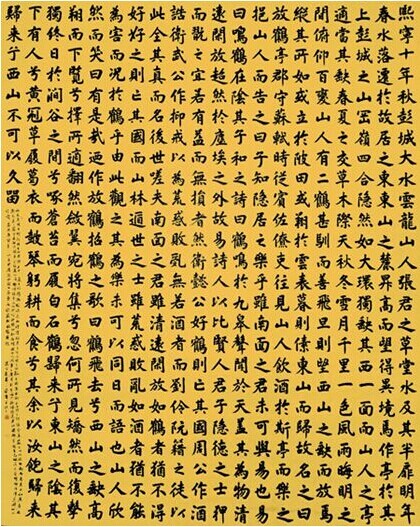 熙寧十年秋彭城大水雲龍山人張君之堂水及其半扉明年
春水落遷於故居之東東山之麓升高而望得異境焉作亭於其
上彭城之山岡嶺四合隱然如大環獨缺其西一面而山人之亭
適當其缺春夏之交草木際天秋冬雪月千里一色風雨晦明之
間俯仰百變山人有二鶴甚馴而善飛旦則望西山之缺而放焉
縱其所如或立於陂田或翔於雲表暮則傃東山而歸故名之曰
放鶴亭郡守蘇軾時從賓佐僚吏往見山人飲酒於斯亭而樂之
挹山人而告之曰子知隱居之樂乎雖南面之君未可與易也易
曰鳴鶴在陰其子和之詩曰鶴鳴於九皋聲聞於天蓋其為物清
遠閑放超然於塵埃之外故易詩人以比賢人君子隱德之士狎
而翫之宜若有益而無損者然衛懿公好鶴則亡其國周公作酒
誥衛武公作抑戒以為荒惑敗亂無若酒者而劉伶阮籍之徒以
此全其真而名後世嗟夫南面之君雖清遠閑放如鶴者猶不得
好好之則亡其國而山林遯世之士雖荒惑敗亂如酒者猶不能
為害而況於鶴乎由此觀之其為樂未可以同日而語也山人欣
然而笑曰有是哉迺作放鶴招鶴之歌曰鶴飛去兮西山之缺高
翔而下覽兮擇所適翻然斂翼宛將集兮忽何所見矯然而復
獨終日於澗谷之間兮啄蒼苔而履白石鶴歸來兮東山之陰其
下有人兮黃冠草履葛衣而鼓琴躬耕而食兮其余以汝飽歸來
歸來兮西山不可以久留